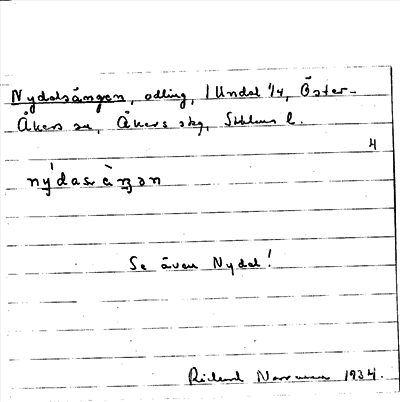 Nydalsängen, odling, i Undal 1/4, Öster-
Åkers sn, Åkers skg, Sthlms l.
4
nýdasₑàŋən
Se även Nydal!
Rickard 1934.